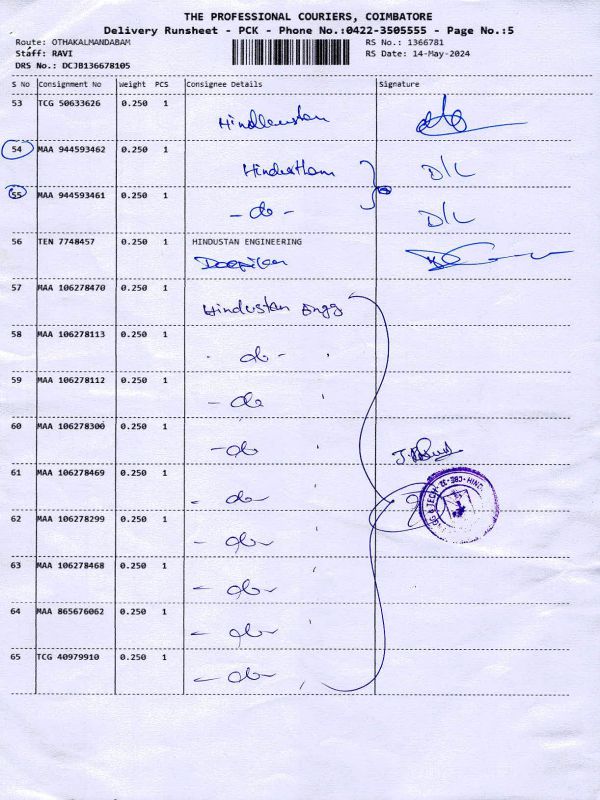 THE PROFESSIONAL COURIERS, COIMBATORE
Delivery Runsheet - PCK - Phone No.:0422-3505555 - Page No.:5
Route: OTHAKALMANDABAM RS No.: 1366781
Staff: RAVI RS Date: 14-May-2024
DRS No.: DCJB136678105
S No Consignment No Weight PCS Consignee Details Signature
53 TCG 50633626 0.250 1
54 MAA 944593462 0.250 1 D/L
55 MAA 944593461 0.250 1 - do - D/L
56 TEN 7748457 0.250 1 HINDUSTAN ENGINEERING
57 MAA 106278470 0.250 1 Hindustan Engg
58 MAA 106278113 0.250 1 - do -
59 MAA 106278112 0.250 1 - do
60 MAA 106278300 0.250 1 - do
61 MAA 106278469 0.250 1 - do -
62 MAA 106278299 0.250 1 - do -
63 MAA 106278468 0.250 1 - do -
64 MAA 865676062 0.250 1 - do -
65 TCG 40979910 0.250 1 - do -